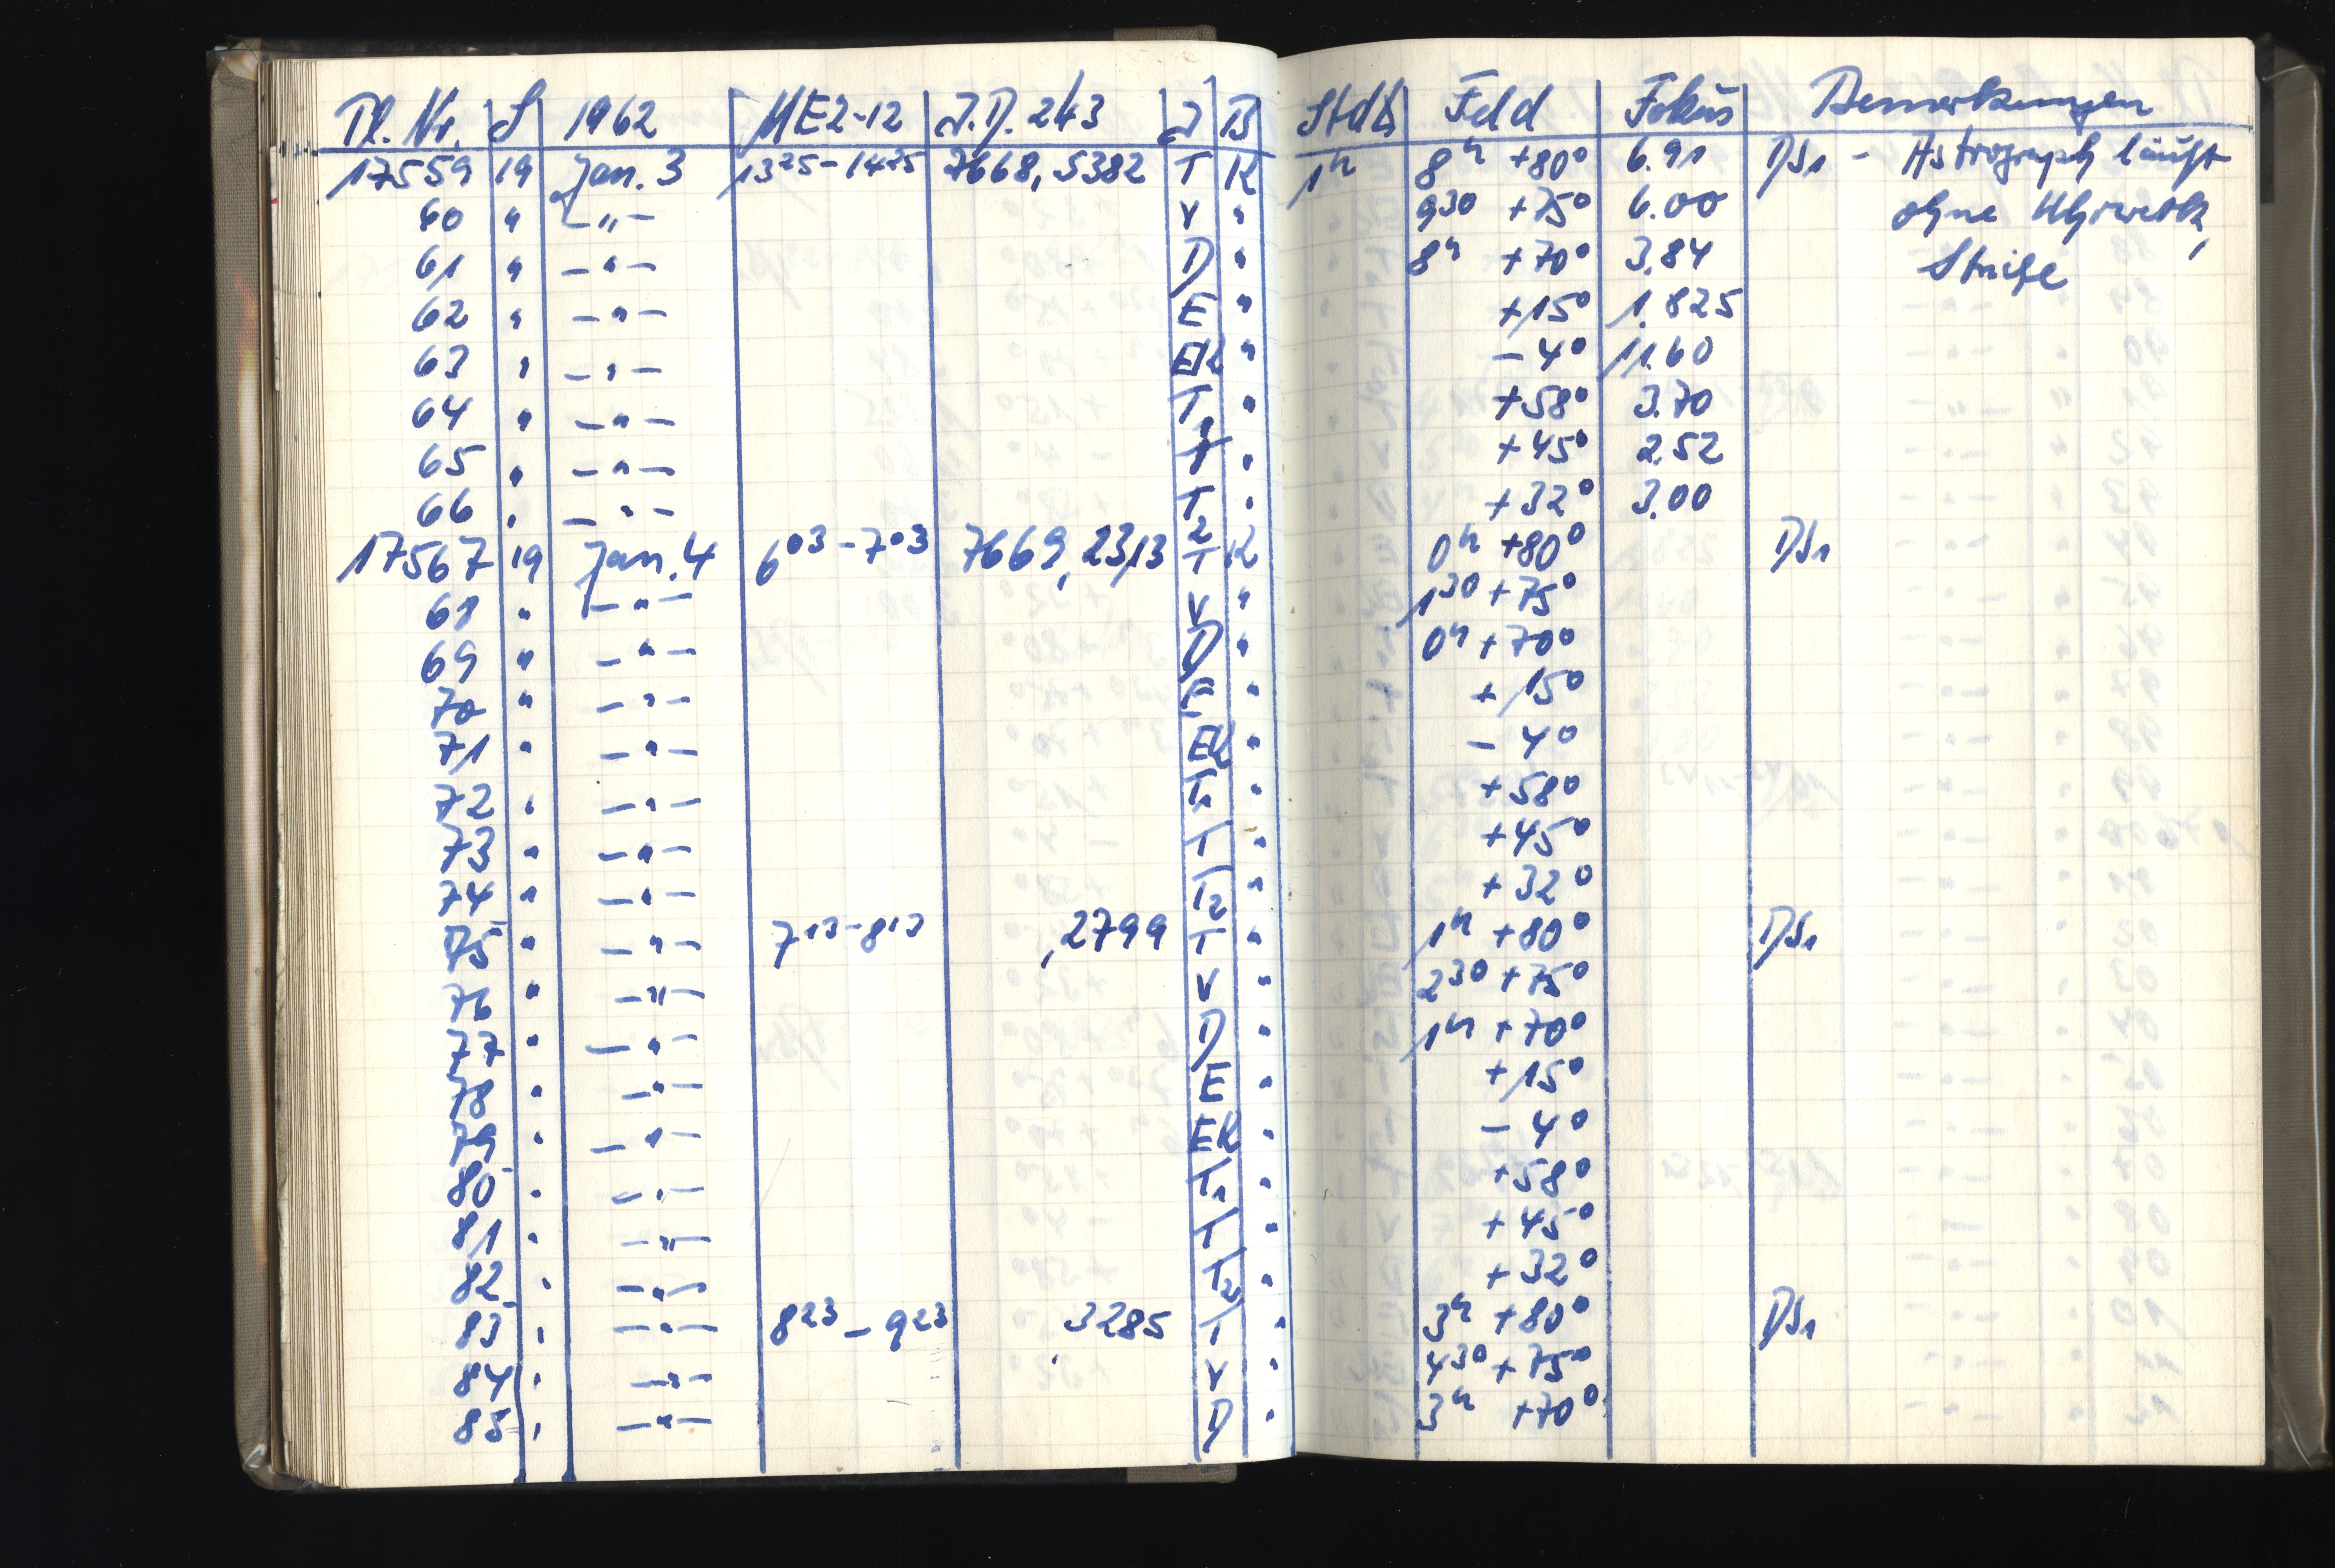 Pl. Nr. S 1962 MEZ-12 J.D. 243 J B Stdt Feld Fokus Bemerkungen
17559 19 Jan. 3 13 25 - 14 25 7668,5382 T K 1h 8h +80° 6.91 DS1 - Astrograph läuft
60 " -"- V " 9 30 +75° 6.00 ohne Uhrwerk,
61 " -"- D " 8h +70° 3.84 Striche
62 " -"- E " +15° 1.825
63 " -"- EK " -4° 11.60
64 " -"- T1 " +58° 3.70
65 " -"- T " +45° 2.52
66 " -"- T2 " +32° 3.00
17567 19 Jan. 4 6 03 - 7 03 7669,2313 T K 0h +80° DS1
68 " -"- V " 1 30 +75°
69 " -"- D " 0h +70°
70 " -"- E " +15°
71 " -"- EK " -4°
72 " -"- T1 " +58°
73 " -"- T " +45°
74 " -"- T2 " +32°
75 " -"- 7 13 - 8 13 ,2799 T " 1h +80° DS1
76 " -"- V " 2 30 +75°
77 " -"- D " 1h +70°
78 " -"- E " +15°
79 " -"- EK " -4°
80 " -"- T1 " +58°
81 " -"- T " +45°
82 " -"- T2 " +32°
83 " -"- 8 23 - 9 23 ,3285 T " 3h +80° DS1
84 " -"- V " 4 30 +75°
85 " -"- D " 3h +70°